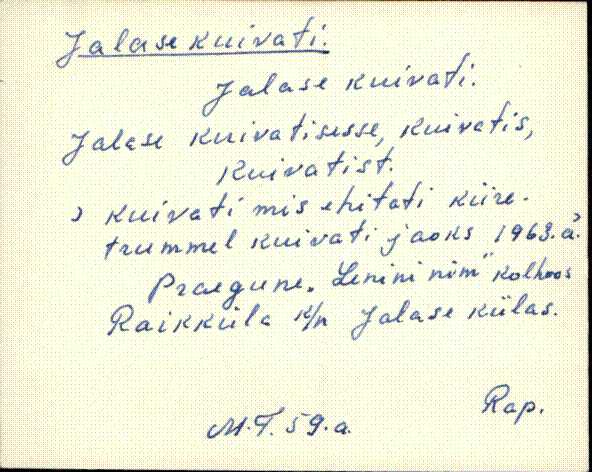 Jalase kuivati.
Jalase kuivati.
Jalase kuivatisesse, kuivatis,
kuivatist.
> kuivati mis ehitati kiire-
trummel kuivati jaoks 1963.a?
Praegune „Lenini nim" kolhoos
Raikküla k/n Jalase külas.
Rap.
M.T. 59.a.